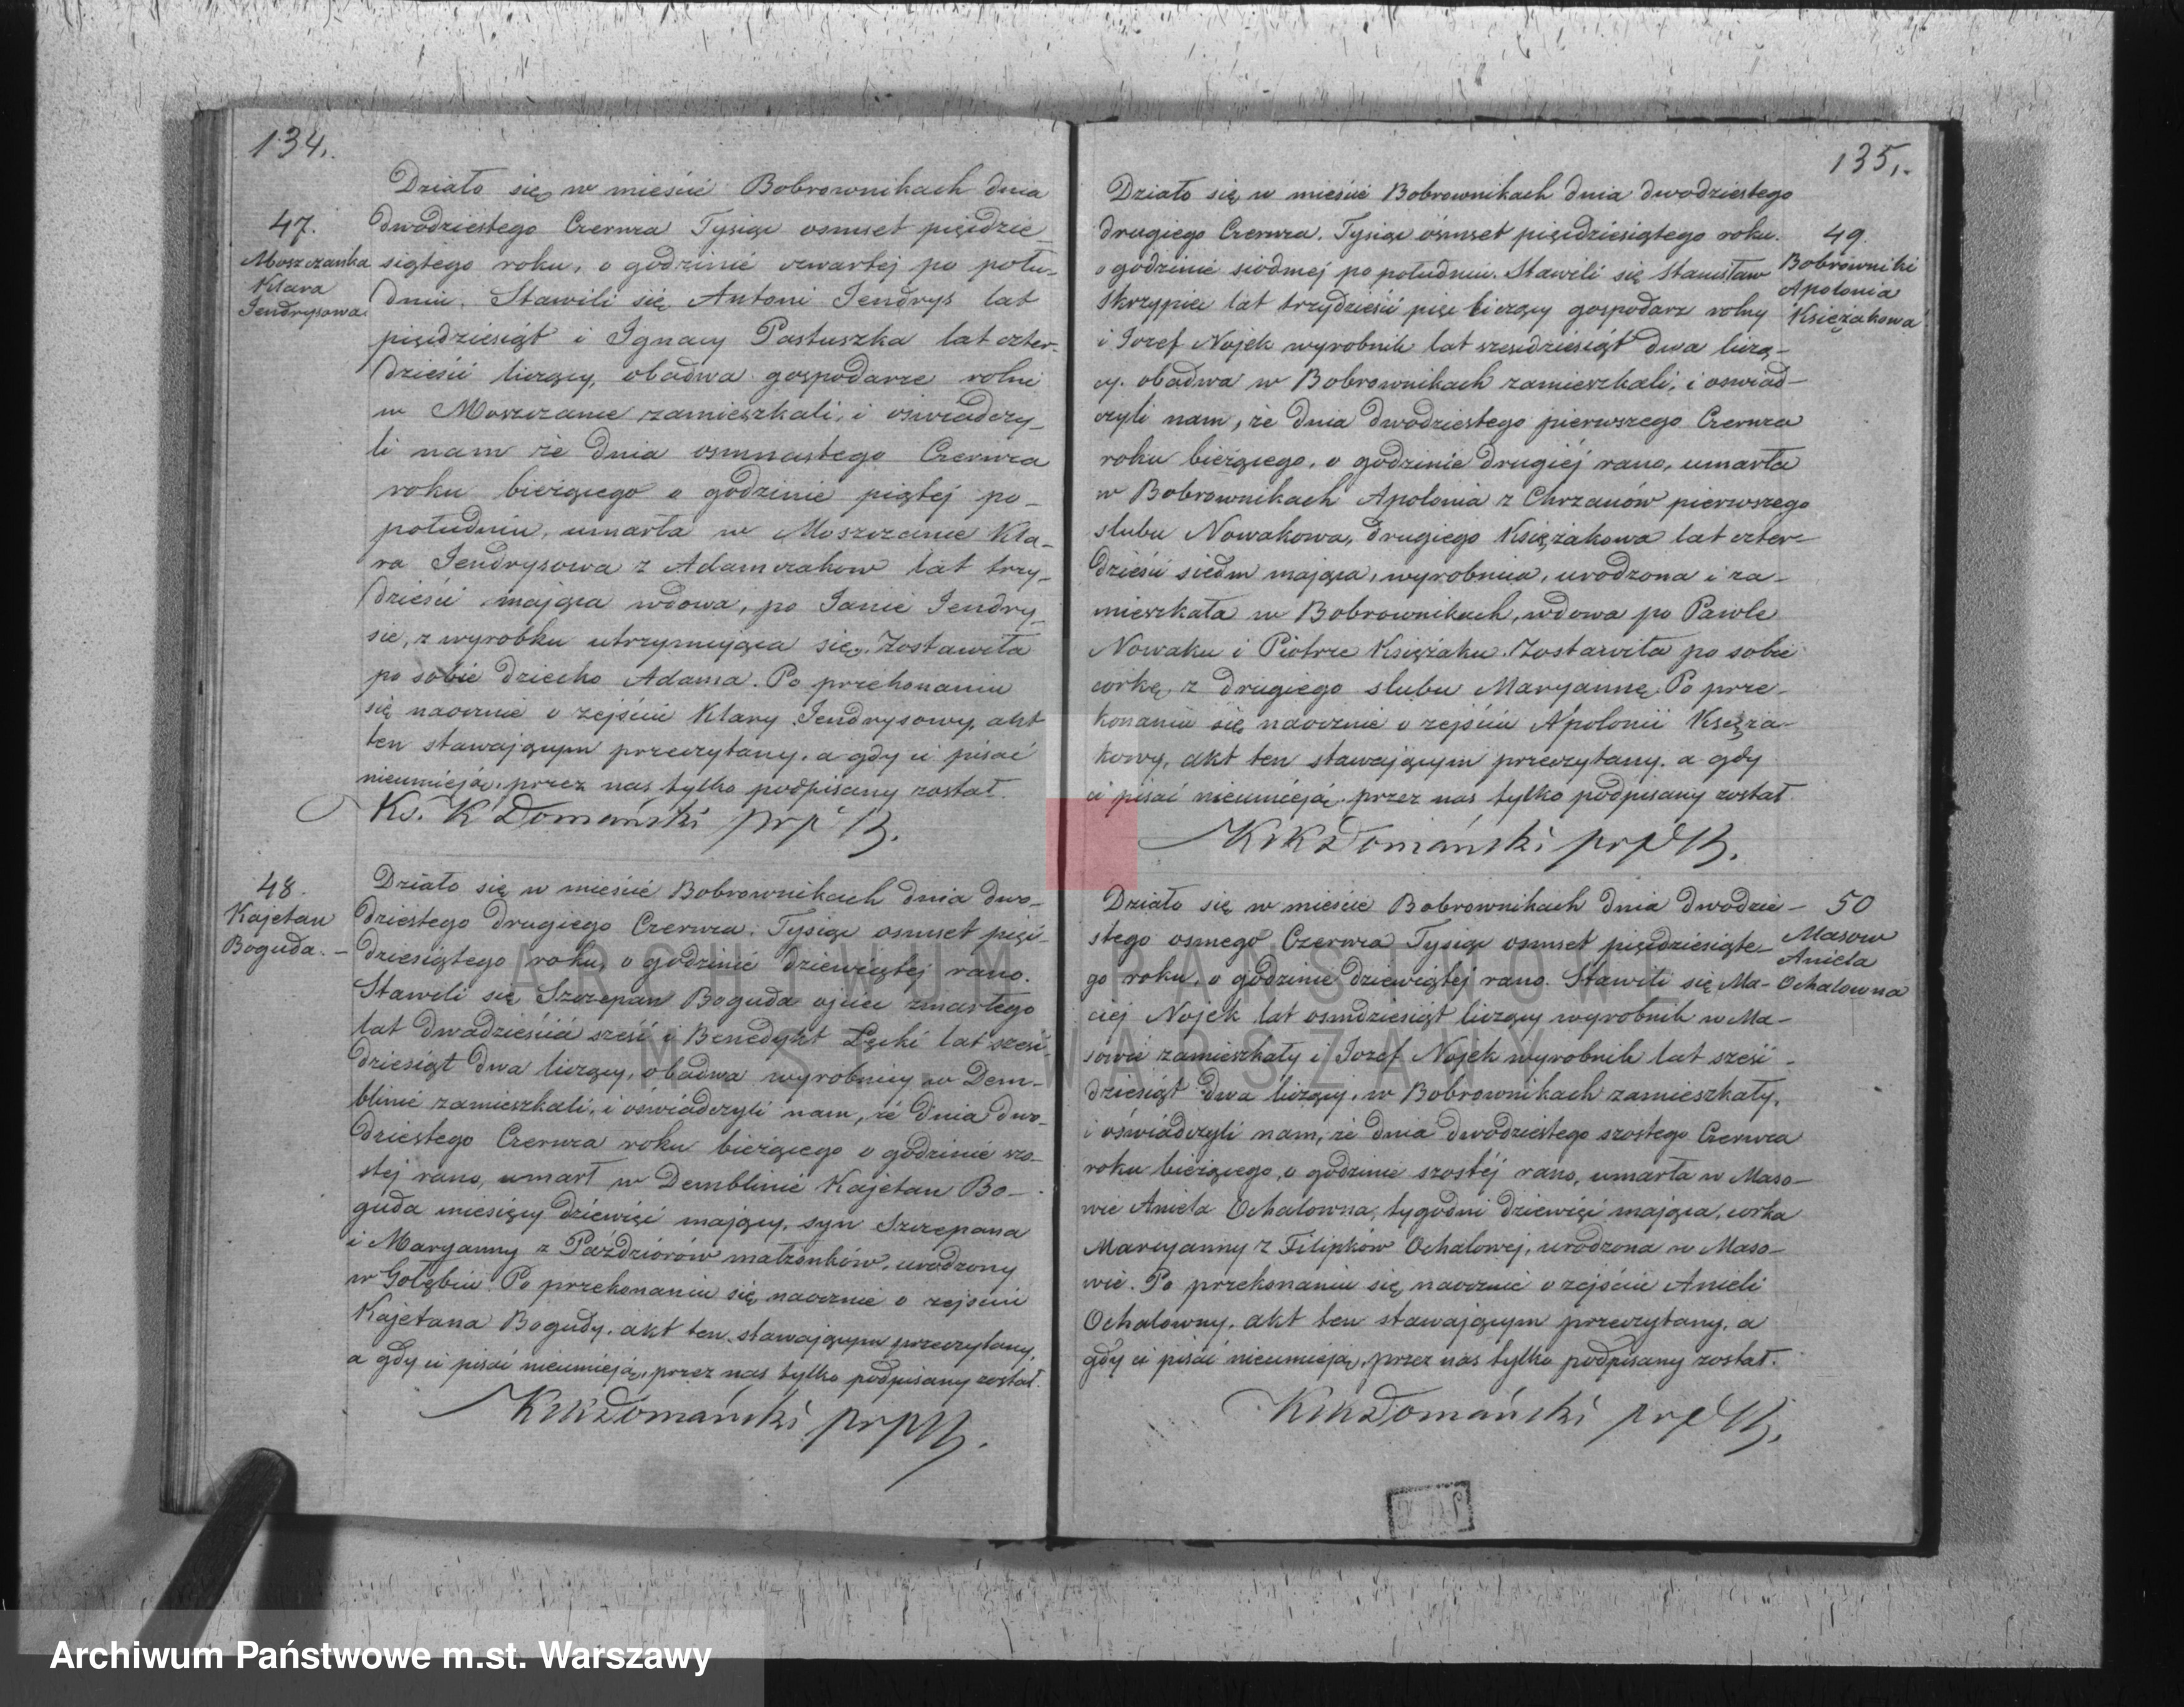 134.
47.
Moszczanka
Klara
Jendrysowa
Działo się w mieście Bobrownikach dnia
dwodziestego Czerwca Tysiąc osmset pięidzie-
siątego roku, o godzinie czwartej po połu-
dniu. Stawili się Antoni Jendrys lat
pięidziesiąt i Ignacy Pastuszka lat czter-
dzieści liczący, obadwa gospodarze rolni
w Moszczance zamieszkali, i oswiadczy-
li nam że dnia osmnastego Czerwca
roku bieżącego o godzinie piątej po-
południu, umarła w Moszczance Kla-
ra Jendrysowa z Adamczakow lat trzy-
dzieści mająca wdowa, po Janie Jendry-
sie, z wyrobku utrzymująca się. Zostawiła
po sobie dziecko Adama. Po przekonaniu
się naocznie o zejściu Klary Jendrysowy, akt
ten stawającym przeczytany, a gdy ci pisać
nieumieją, przez nas tylko podpisany został.
Ks. K Domański prp B.
48.
Kajetan
Boguda. -
Działo się w mieście Bobrownikach dnia dwo-
dziestego drugiego Czerwca, Tysiąc osmset pięi-
dziesiątego roku, o godzinie dziewiątej rano.
Stawili się Szczepan Boguda ojciec zmarłego
lat dwadzieścia sześć i Benedykt Łęcki lat sześć-
dziesiąt dwa liczący, obadwa wyrobnicy w Dem-
blinie zamieszkali, i oświadczyli nam, że dnia dwo-
dziestego Czerwca roku bieżącego o godzinie szo-
stej rano, umarł w Demblinie Kajetan Bo-
guda miesięcy dziewięć mający, syn Szczepana
i Maryanny z Paździórów małżonków, urodzony
w Gołębiu. Po przekonaniu się naocznie o zejściu
Kajetana Bogudy, akt ten stawającym przeczytany,
a gdy ci pisać nieumieją, przez nas tylko podpisany został.
KsKDomański prp B.
135.
Działo się w mieście Bobrownikach dnia dwodziestego
drugiego Czerwca, Tysiąc ósmset pięidziesiątego roku.
o godzinie siodmej po południu. Stawili się Stanisław
Skrzypiec lat trzydzieści pięć liczący gospodarz rolny
i Jozef Nojek wyrobnik lat sześdziesiąt dwa liczą-
cy, obadwa w Bobrownikach zamieszkali, i oswiad-
czyli nam, że dnia dwodziestego pierwszego Czerwca
roku bieżącego, o godzinie drugiéj rano, umarła
w Bobrownikach Apolonia z Chrzanów pierwszego
slubu Nowakowa, drugiego Księżakowa lat czter-
dzieści siedm mająca, wyrobnica, urodzona i za-
mieszkała w Bobrownikach, wdowa po Pawle
Nowaku i Piotrze Księżaku. Zostawiła po sobie
corkę z drugiego slubu Maryannę. Po prze-
konaniu się naocznie o zejściu Apolonii Księża-
kowy, akt ten stawającym przeczytany, a gdy
ci pisać nieumieją, przez nas tylko podpisany został.
KsKDomański prp B.
49.
Bobrowniki
Apolonia
Księżakowa
Działo się w mieście Bobrownikach dnia dwodzie-
stego osmego Czerwca Tysiąc osmset pięidziesiąte-
go roku, o godzinie dziewiątej rano. Stawili się Ma-
ciej Nojek lat osmdziesiąt liczący wyrobnik w Ma-
sowie zamieszkały i Jozef Nojek wyrobnik lat sześć-
dziesiąt dwa liczący, w Bobrownikach zamieszkały,
i oświadczyli nam, że dnia dwodziestego szostego Czerwca
roku bieżącego, o godzinie szostéj rano, umarła w Maso-
wie Aniela Ochalowna, tygodni dziewięć mająca, corka
Maryanny z Filipków Ochalowej, urodzona w Maso-
wie. Po przekonaniu się naocznie o zejściu Anieli
Ochalowny, akt ten stawającym przeczytany, a
gdy ci pisać nieumieją, przez nas tylko podpisany został.
KsKDomański prp B.
50
Masow
Aniela
Ochalowna
ARCHIWUM PAŃSTWOWE
M. ST. WARSZAWY
Archiwum Państwowe m.st. Warszawy